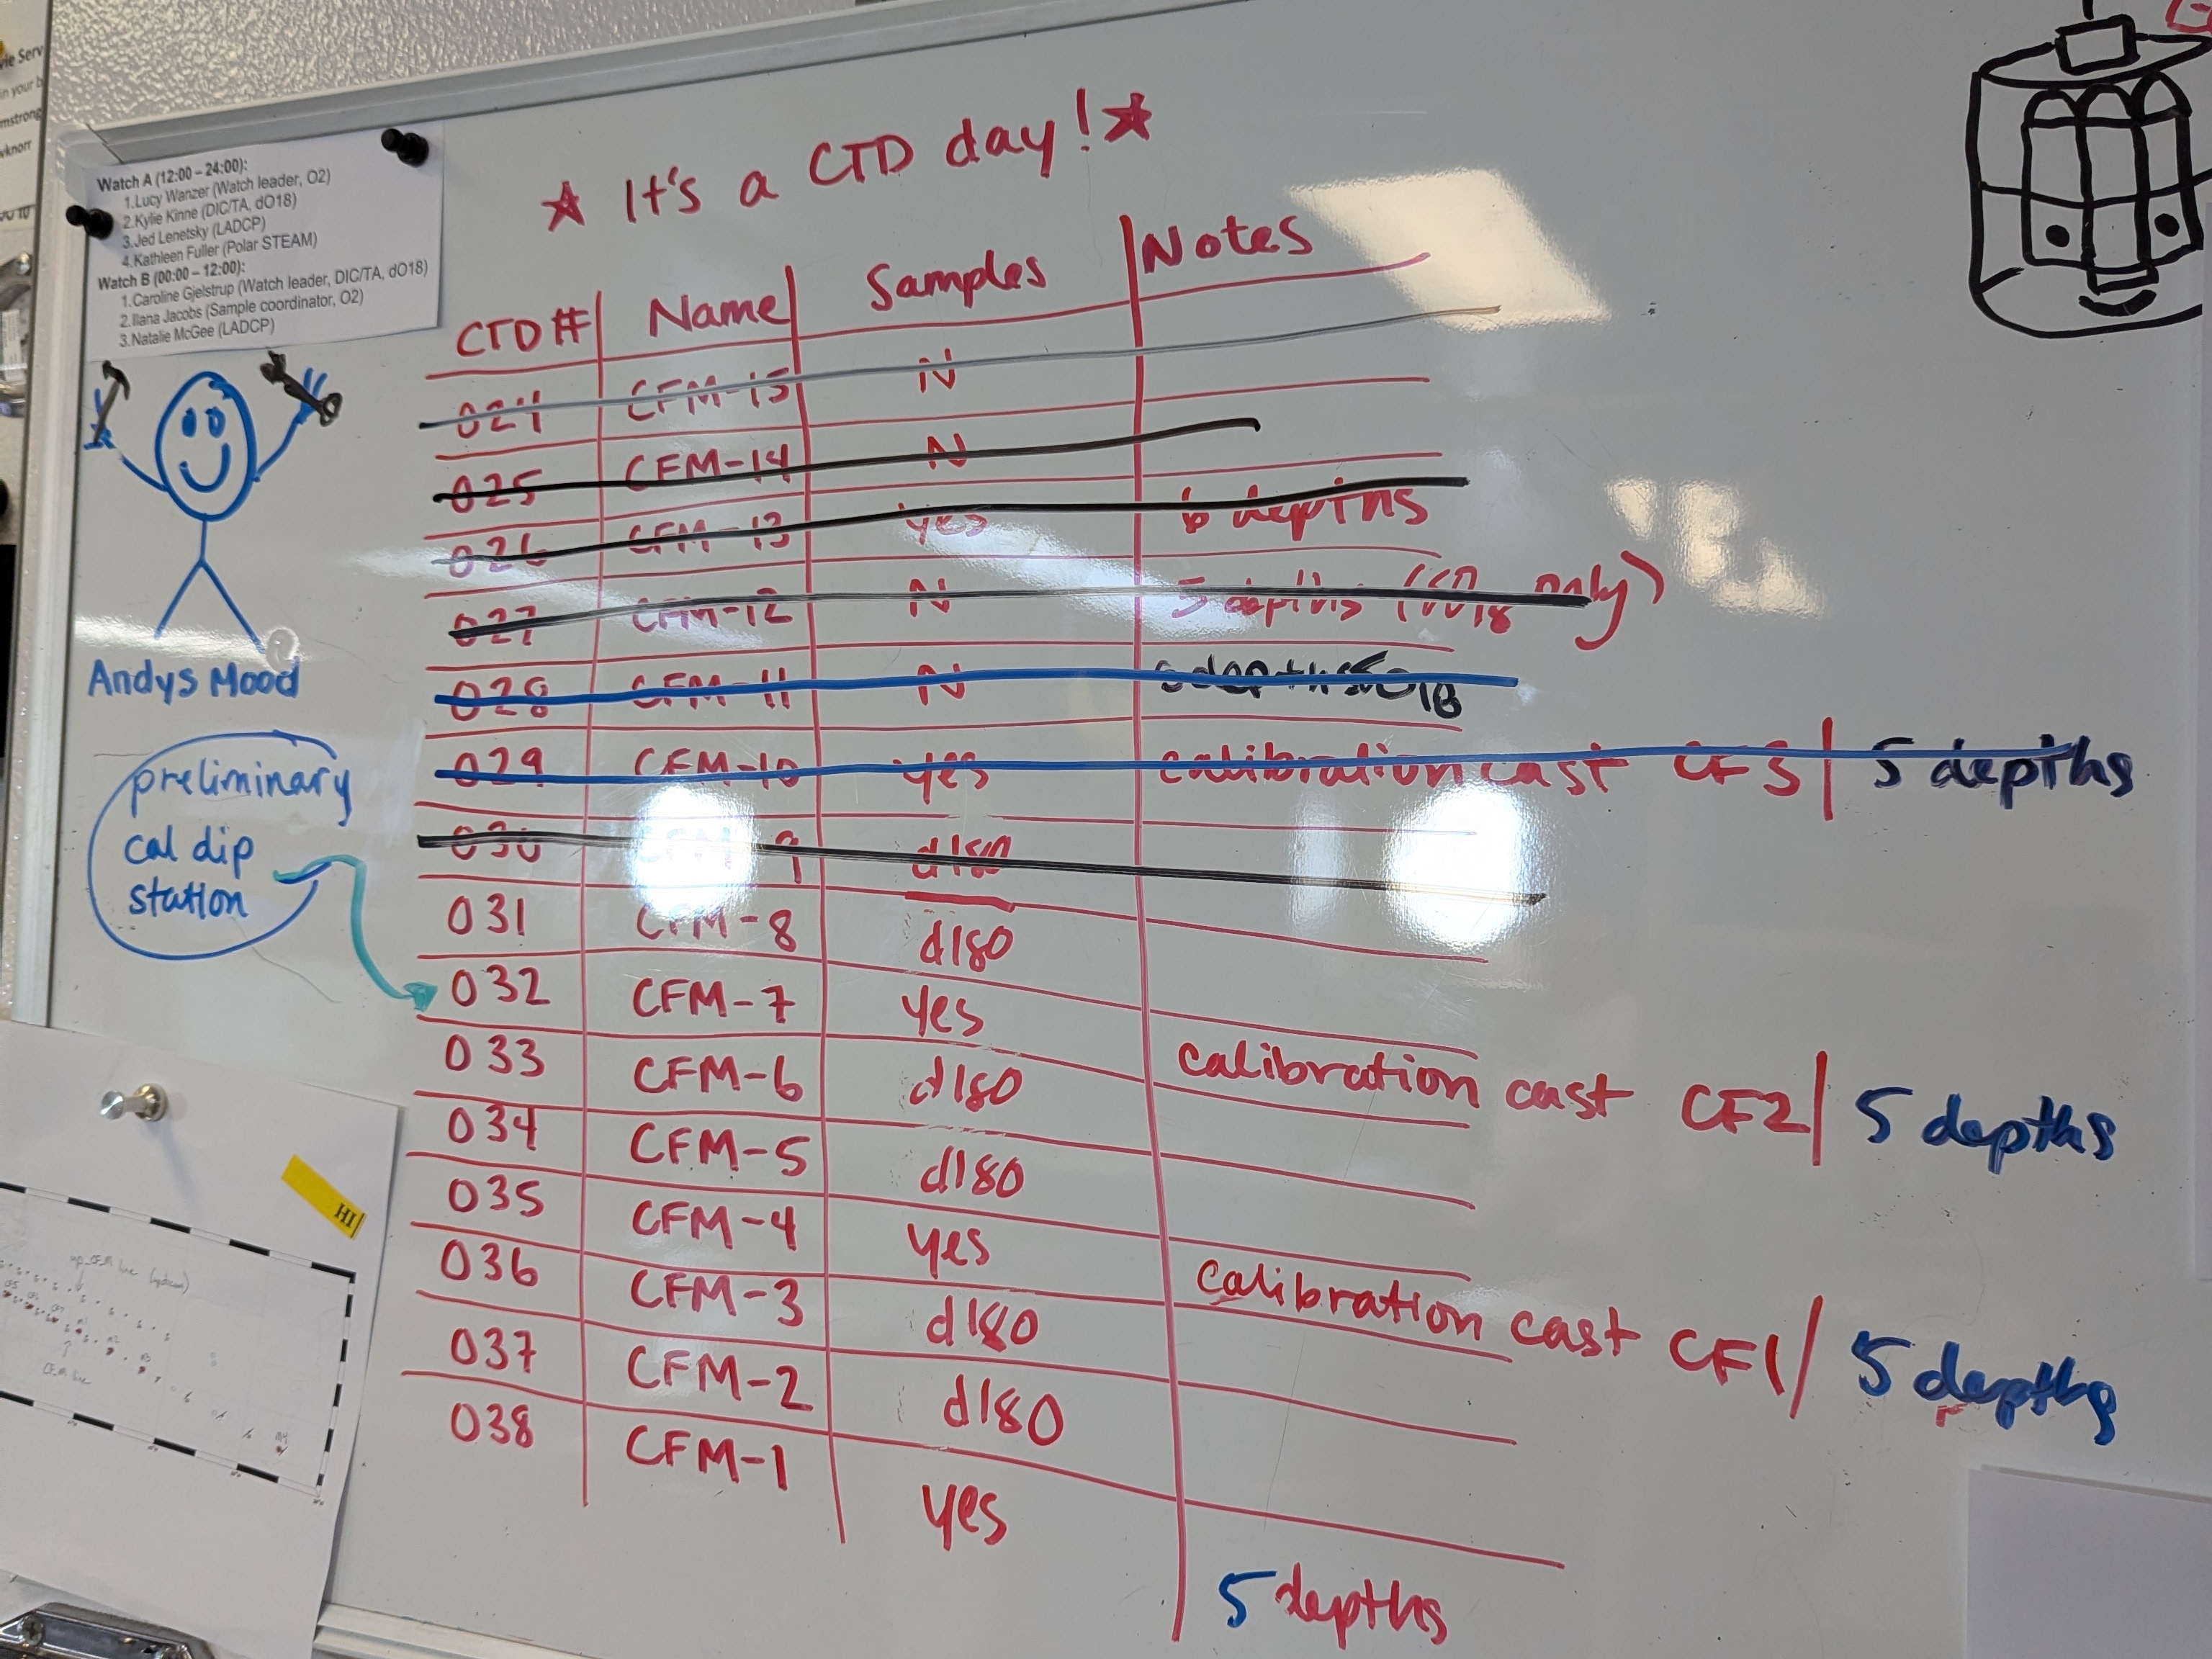 vie Serv
in your b
mstrong
vknorr
Watch A (12:00 – 24:00):
1.Lucy Wanzer (Watch leader, O2)
2.Kylie Kinne (DIC/TA, dO18)
3.Jed Lenetsky (LADCP)
4.Kathleen Fuller (Polar STEAM)
Watch B (00:00 – 12:00):
1.Caroline Gjelstrup (Watch leader, DIC/TA, dO18)
2.Ilana Jacobs (Sample coordinator, O2)
3.Natalie McGee (LADCP)
It's a CTD day!
CTD# Name Samples Notes
024 CFM-15 N
025 CFM-14 N
026 CFM-13 yes 6 depths
027 CFM-12 N 5 depths only)
028 CFM-11 N
029 CFM-10 yes calibration cast CF3 | 5 depths
030 CFM-9 d180
031 CFM-8 d180
032 CFM-7 yes calibration cast CF2 | 5 depths
033 CFM-6 d180
034 CFM-5 d180
035 CFM-4 yes calibration cast CF1 / 5 depths
036 CFM-3 d180
037 CFM-2 d180
038 CFM-1 yes 5 depths
Andys Mood
preliminary
cal dip
station
HI
CFM line